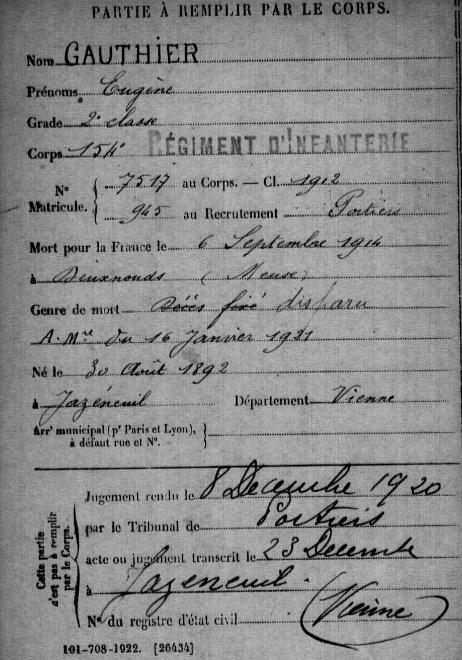 PARTIE À REMPLIR PAR LE CORPS.
Nom GAUTHIER
Prénoms Eugène
Grade 2e classe
Corps 154e RÉGIMENT D'INFANTERIE
N° Matricule. { 7517 au Corps. — Cl. 1912
945 au Recrutement Poitiers
Mort pour la France le 6 Septembre 1914
à Deuxnouds (Meuse)
Genre de mort Décés fixé disparu
A. Mel du 16 Janvier 1921
Né le 30 Août 1892
à Jazeneuil Département Vienne
Arrt municipal (pr Paris et Lyon), à défaut rue et N°. }
Jugement rendu le 8 Décembre 1920
par le Tribunal de Poitiers
acte ou jugement transcrit le 23 Decembre
à Jazeneuil.
N° du registre d'état civil (Vienne)
Cette partie n'est pas à remplir par le Corps.
101-708-1922. [26434]